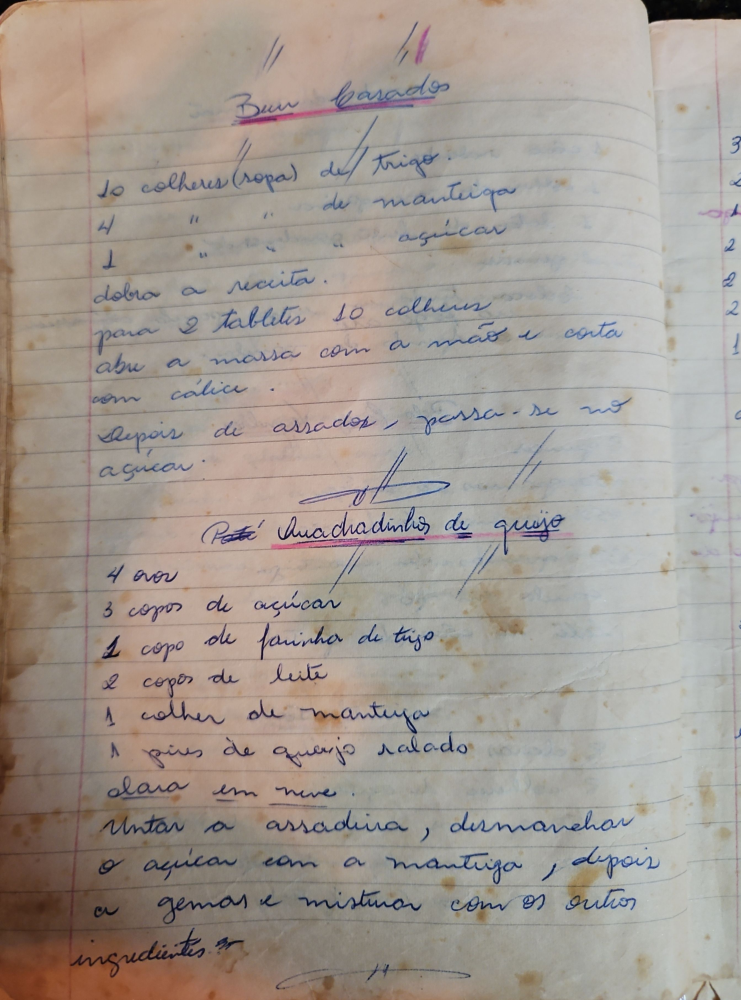 Bem Casados
10 colheres (sopa) de trigo.
4 " " de manteiga
1 " " " açúcar
dobra a receita.
para 2 tabletes 10 colheres
abre a massa com a mão e corta
com cálice.
Depois de assados, passa-se no
açúcar.
Patê Quadradinhos de queijo
4 ovos
3 copos de açúcar
1 copo de farinha de trigo
2 copos de leite
1 colher de manteiga
1 pires de queijo ralado
clara em neve.
Untar a assadeira, desmanchar
o açúcar com a manteiga, depois
a gemas e misturar com os outros
ingredientes.
3
2
1
2
2
2
1